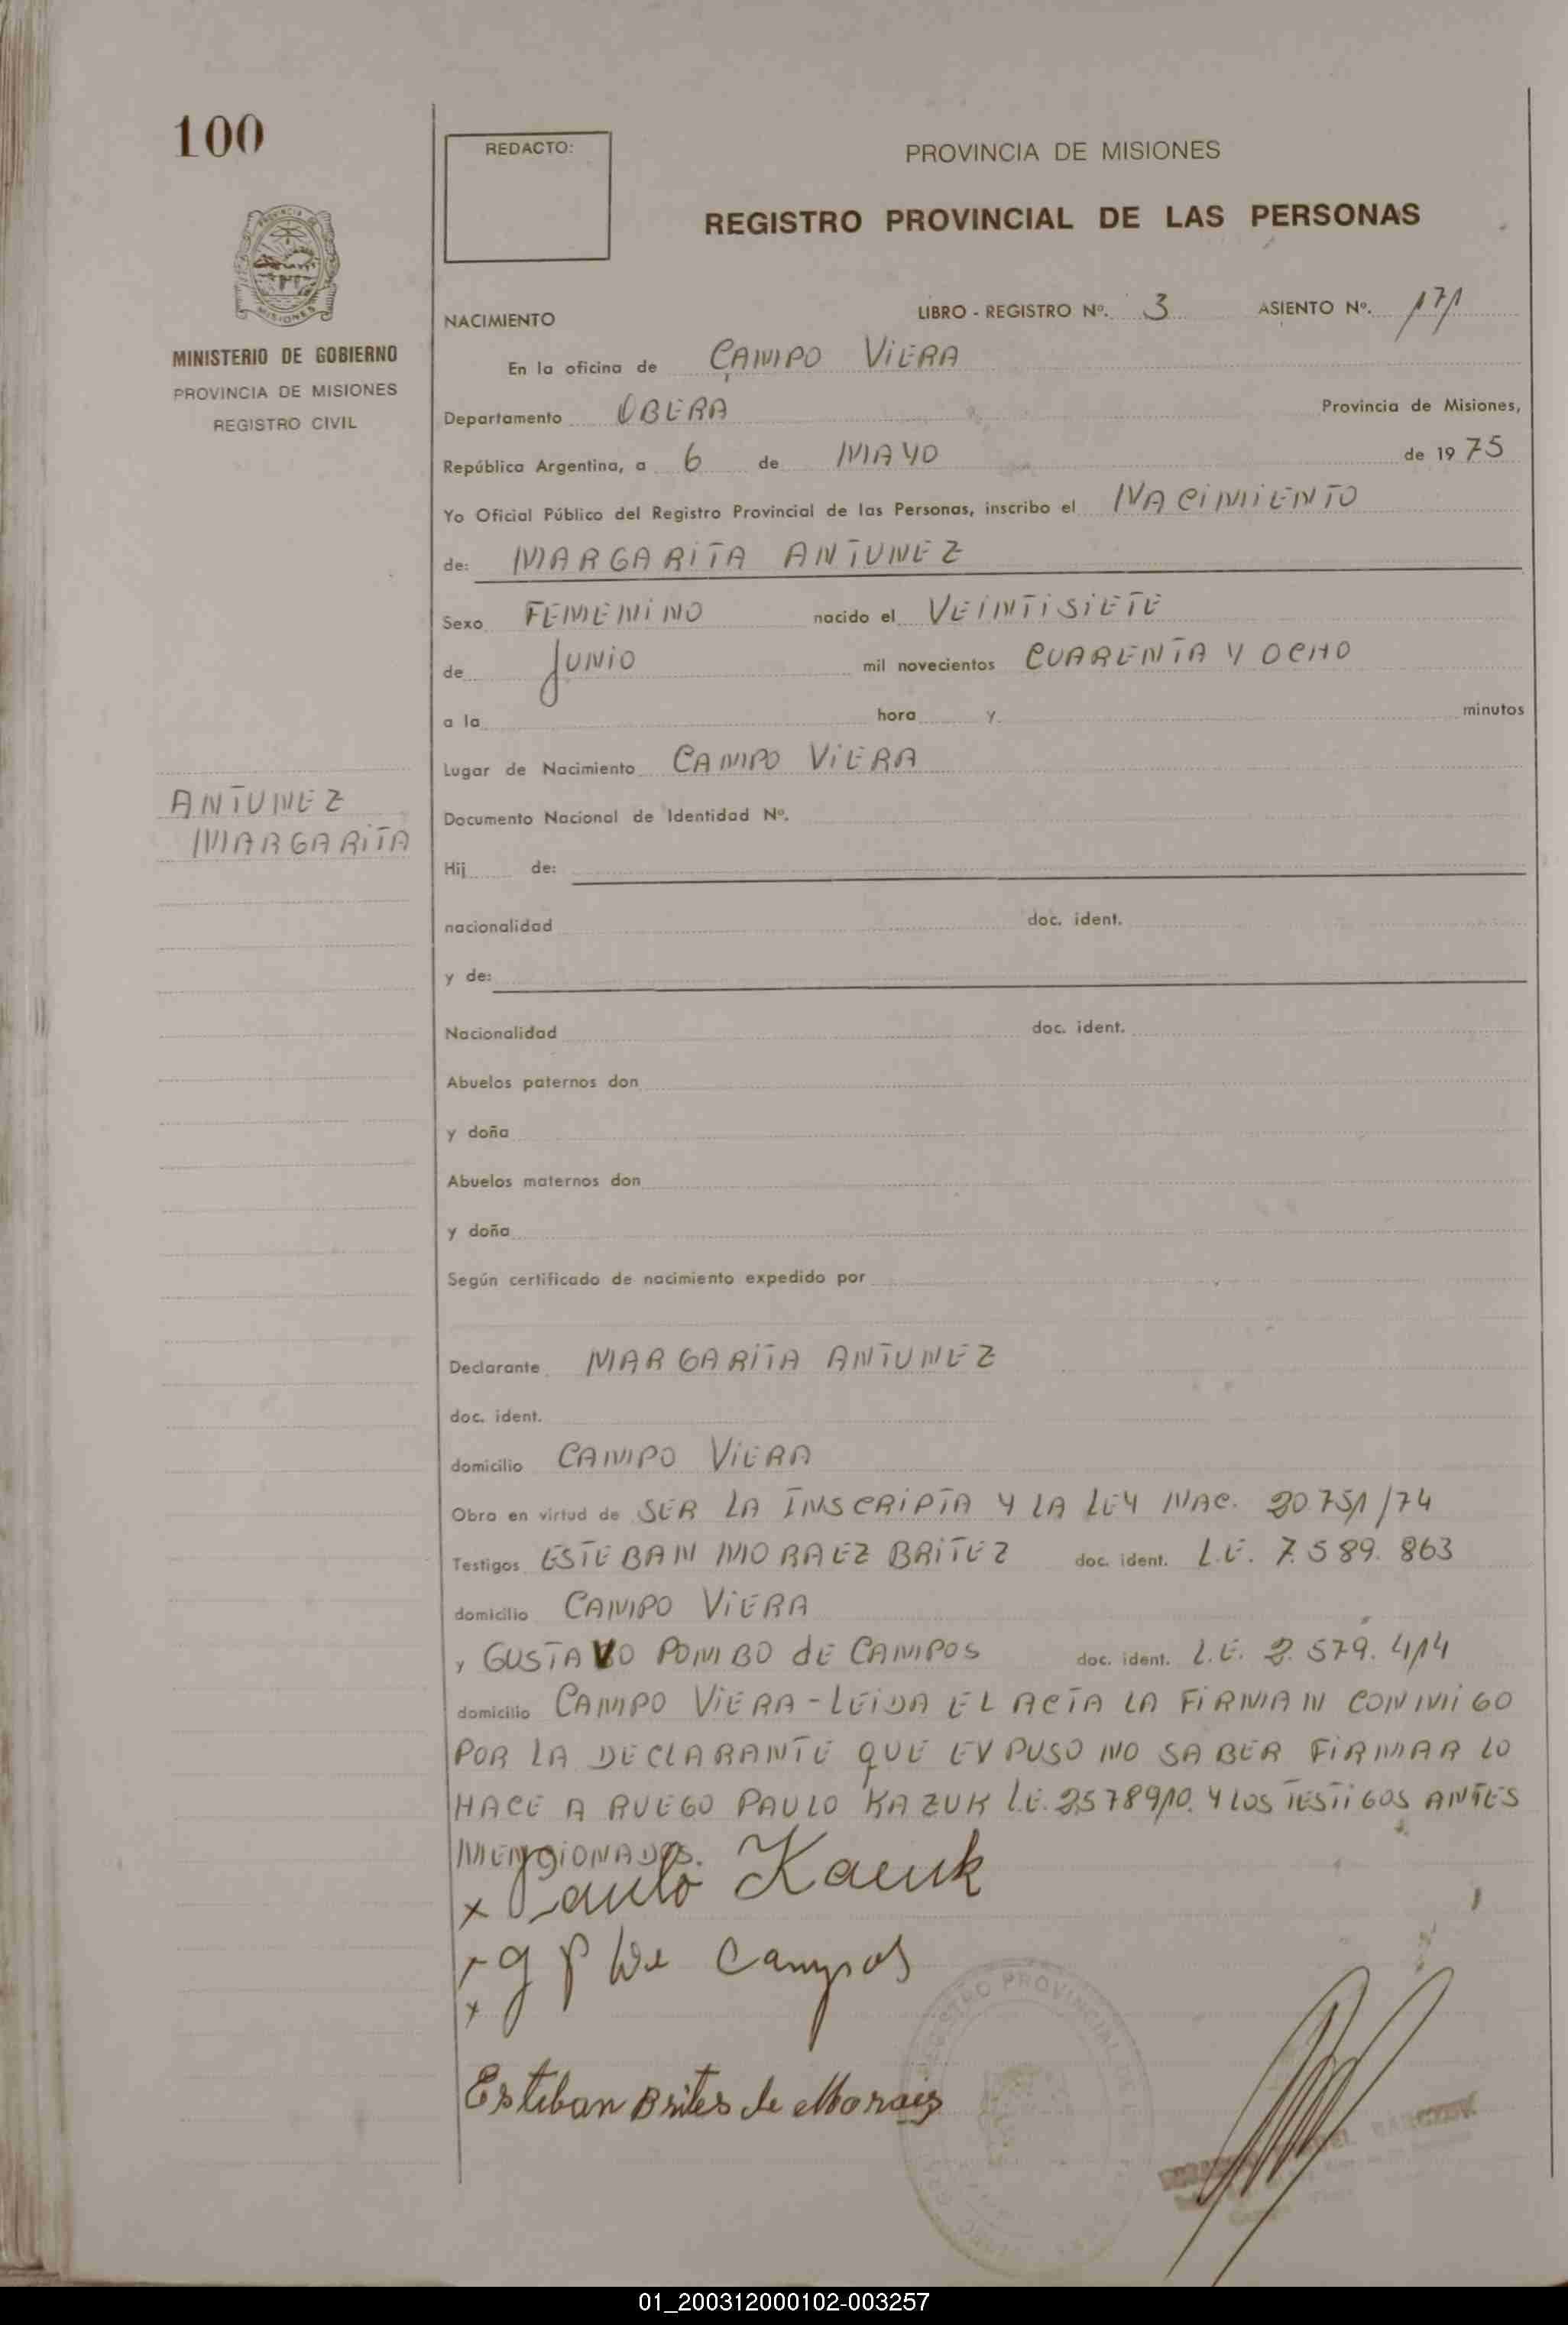 100
REDACTO:
PROVINCIA DE MISIONES
REGISTRO PROVINCIAL DE LAS PERSONAS
MINISTERIO DE GOBIERNO
PROVINCIA DE MISIONES
REGISTRO CIVIL
NACIMIENTO
LIBRO - REGISTRO Nº. 3 ASIENTO Nº. 171
En la oficina de CAMPO VIERA
Departamento OBERA Provincia de Misiones,
República Argentina, a 6 de MAYO de 1975
Yo Oficial Público del Registro Provincial de las Personas, inscribo el NACIMIENTO
de: MARGARITA ANTUNEZ
Sexo FEMENINO nacido el VEINTISIETE
de JUNIO mil novecientos CUARENTA Y OCHO
a la hora y minutos
Lugar de Nacimiento CAMPO VIERA
ANTUNEZ
MARGARITA
Documento Nacional de Identidad Nº.
Hij de:
nacionalidad doc. ident.
y de:
Nacionalidad doc. ident.
Abuelos paternos don
y doña
Abuelos maternos don
y doña
Según certificado de nacimiento expedido por
Declarante MARGARITA ANTUNEZ
doc. ident.
domicilio CAMPO VIERA
Obra en virtud de SER LA INSCRIPTA Y LA LEY NAC. 20751/74
Testigos ESTEBAN MORAEZ BRITEZ doc. ident. L.E. 7.589.863
domicilio CAMPO VIERA
y GUSTAVO POMBO de CAMPOS doc. ident. L.E. 2.579.414
domicilio CAMPO VIERA - LEIDA EL ACTA LA FIRMAN CONMIGO
POR LA DECLARANTE QUE EXPUSO NO SABER FIRMAR LO
HACE A RUEGO PAULO KAZUK L.E. 2578910. Y LOS TESTIGOS ANTES
MENCIONADOS.
x Paulo Kaeuk
x g P de Campos
x
Esteban Brites de Moraiz
REGISTRO PROVINCIAL DE
01_200312000102-003257